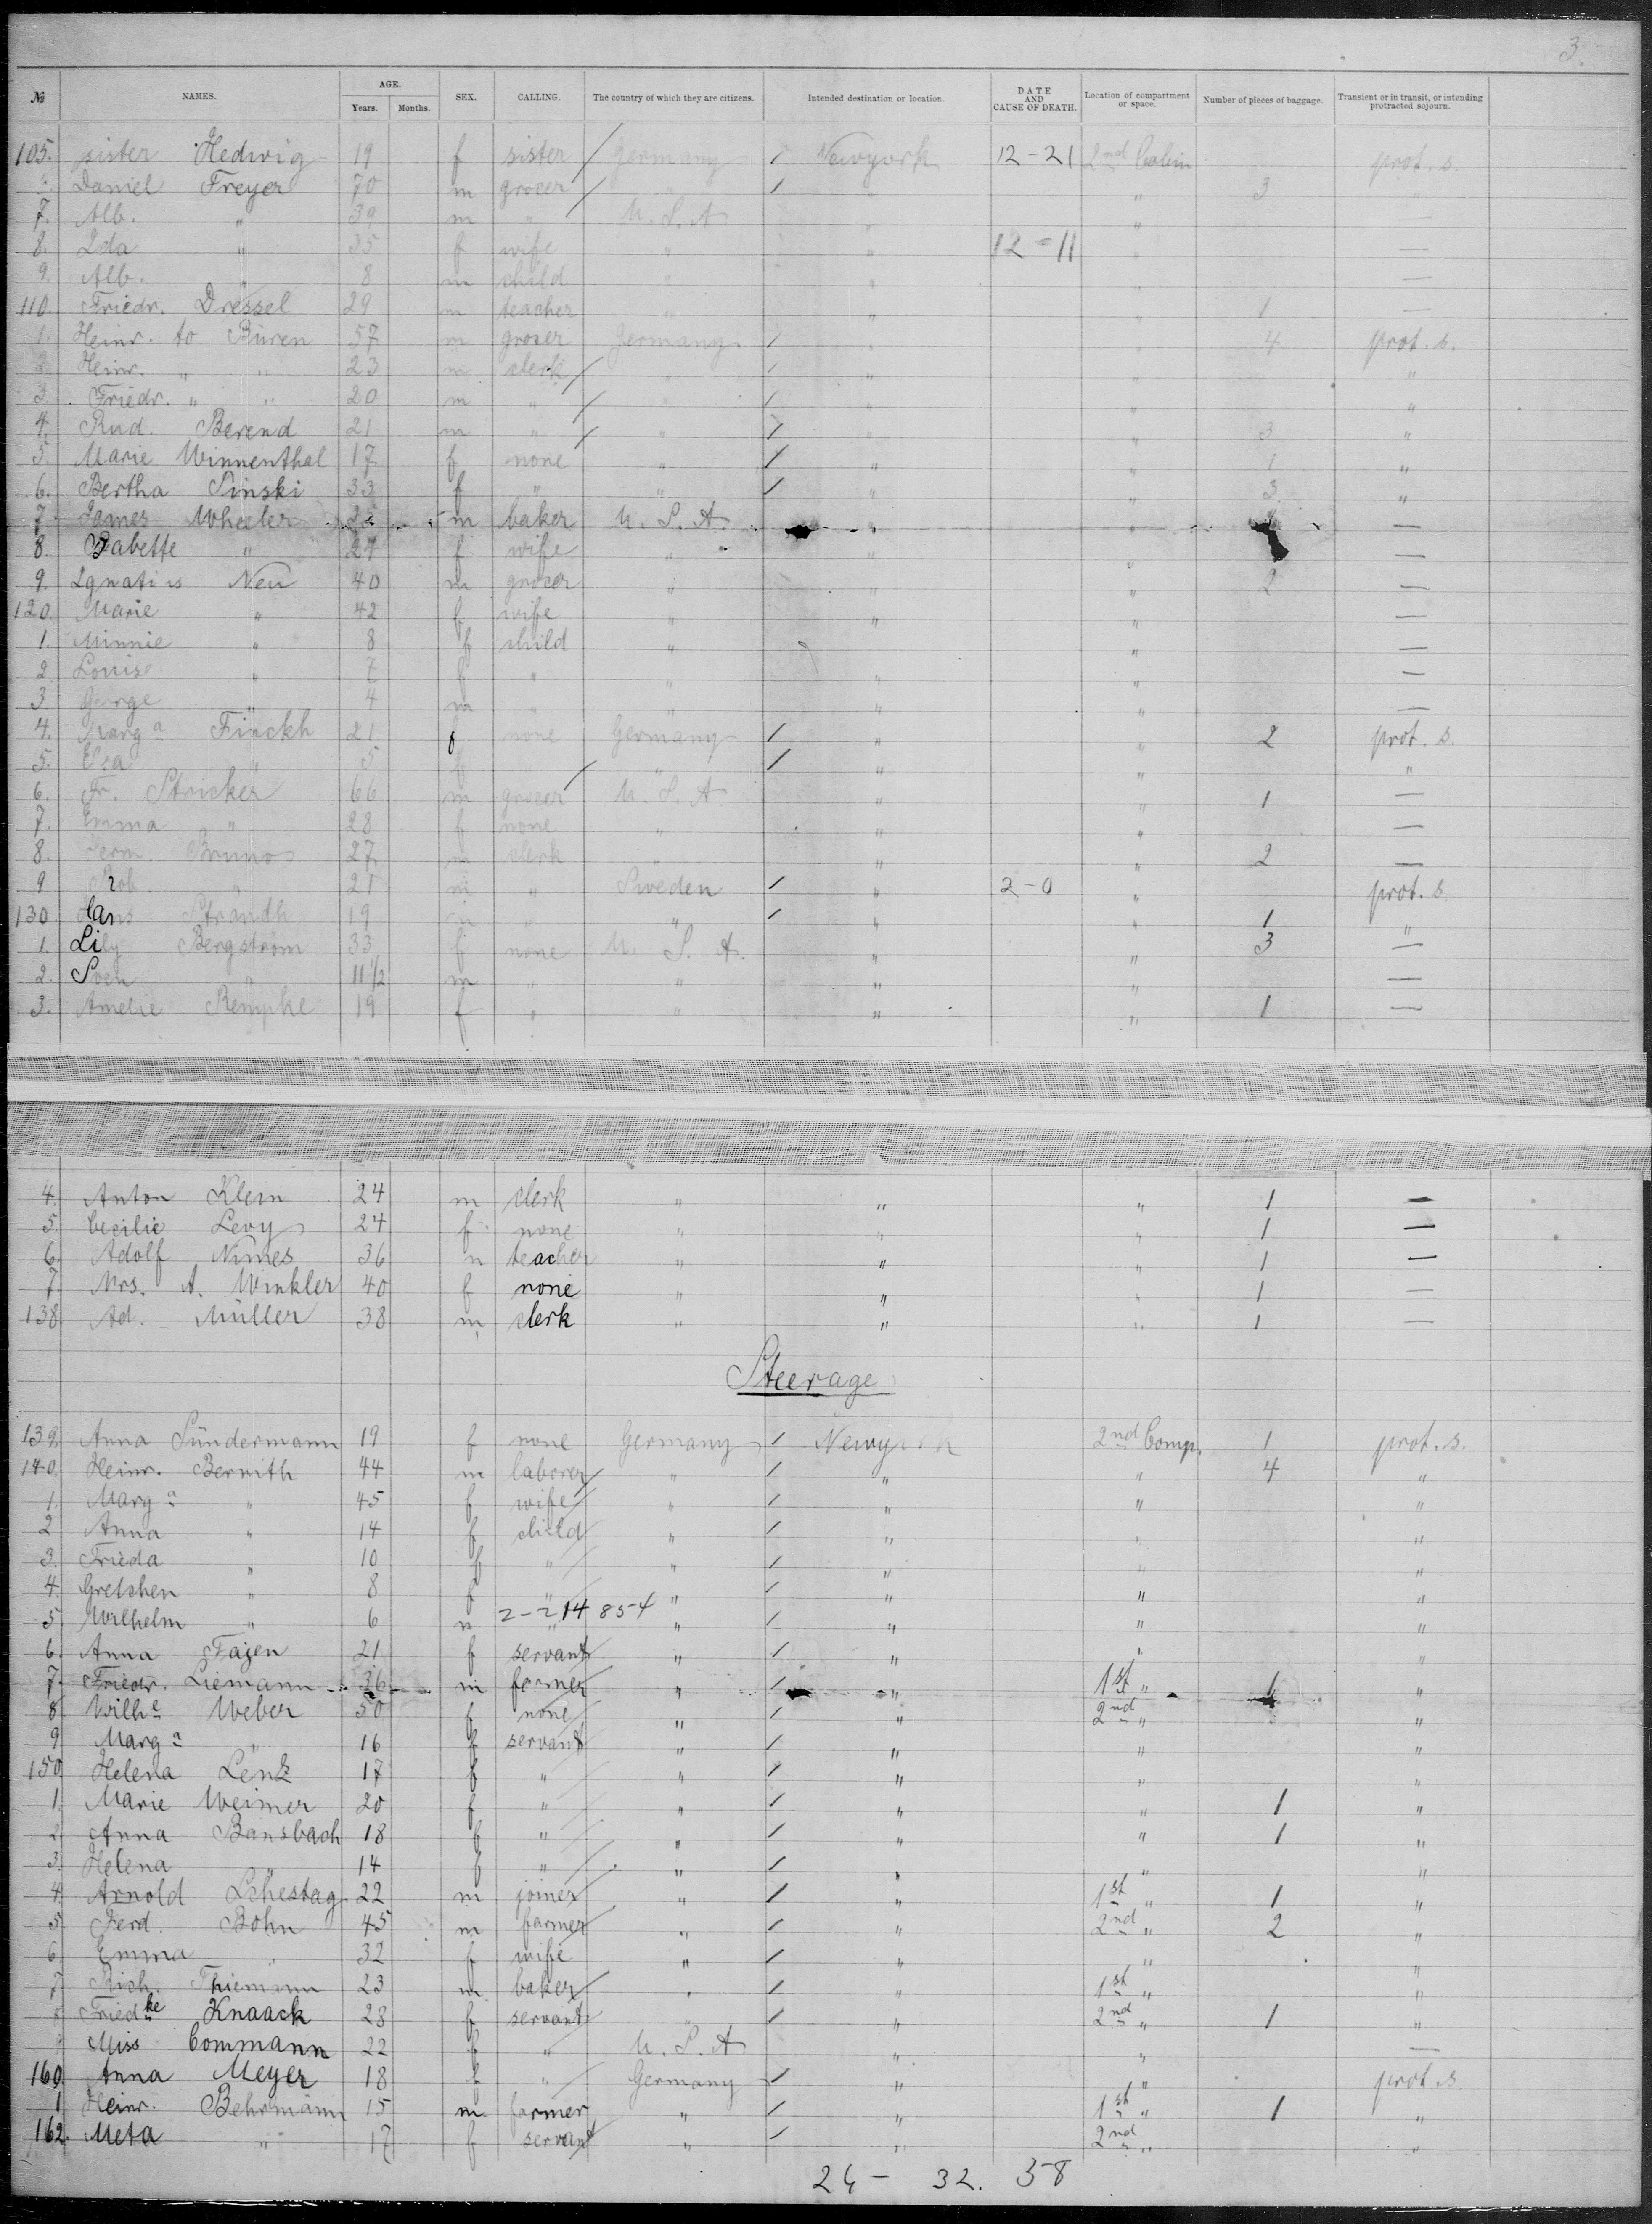 3.
№ NAMES. AGE. Years. Months. SEX. CALLING. The country of which they are citizens. Intended destination or location. DATE AND CAUSE OF DEATH. Location of compartment or space. Number of pieces of baggage. Transient or in transit, or intending protracted sojourn.
105. sister Hedwig 19 f sister Germany / Newyork 12-21 2nd Cabin prot. s.
6. Daniel Freyer 70 m grocer / " / " " 3 "
7. Alb. " 39 m " U.S.A " " —
8. Ida " 35 f wife " " 12-11 " —
9. Alb. " 8 m child " " " —
110. Friedr. Dressel 29 m teacher " " " 1 —
1. Heinr. to Büren 57 m grocer Germany / " " 4 prot. s.
2. Heinr. " " 23 m clerk / " / " " "
3. Friedr. " " 20 m " / " / " " "
4. Rud. Berend 21 m " / " / " " 3 "
5. Marie Winnenthal 17 f none " / " " 1 "
6. Bertha Pinski 33 f " " / " " 3 "
7. James Wheeler m baker U.S.A. " " —
8. Babette " 27 f wife " " " —
9. Ignatius Neu 40 m grocer " " " 2 —
120. Marie " 42 f wife " " " —
1. Minnie " 8 f child " " —
2. Louise " 7 f " " " " —
3. George " 4 m " " " " —
4. Marga Finckh 21 f none Germany / " " 2 prot. s.
5. " 5 f / " / " " "
6. Fr. Stricker 66 m grocer U.S.A " " 1 —
7. Emma " 28 f none " " " —
8. Herm. Bruno 27 m clerk " " " 2 —
9 Rob. " 21 m " Sweden / " 2-0 " prot. s.
130. Hans Strandh 19 m " " / " " 1 "
1. Lily Bergström 33 f none U.S.A. " " 3 —
2. Sven " 11 1/2 m " " " " —
3. Amelie Rempke 19 f " " " " 1 —
4. Anton Klein 24 m clerk " " " 1 —
5. Cecilie Levy 24 f none " " " 1 —
6. Adolf Nimes 36 m teacher " " " 1 —
7 Mrs. A. Winkler 40 f none " " " 1 —
138 Ad. Müller 38 m clerk " " " 1 —
Steerage
139. Anna Sündermann 19 f none Germany / Newyork 2nd Comp. 1 prot. s.
140. Heinr. Bernith 44 m laborer / " / " " 4 "
1. Marga " 45 f wife / " / " " "
2 Anna " 14 f child / " / " " "
3. Frieda " 10 f " / " / " " "
4. Gretchen " 8 f " / " / " " "
5 Wilhelm " 6 m 2-214854 " / " " "
6. Anna Fajen 21 f servant " / " " "
7. Friedr. Liemann 36 m farmer " / " 1st " 1 "
8 Wilhe Weber 50 f none " / " 2nd " "
9 Marga " 16 f servant " / " " "
150 Helena Lenz 17 f " / " / " " "
1. Marie Weimer 20 f " / " / " " 1 "
2 Anna Bansbach 18 f " / " / " " 1 "
3. Helena " 14 f " / " / " " "
4 Arnold Lehestag 22 m joiner " / " 1st " 1 "
5 Ferd. Bohn 45 m farmer " / " 2nd " 2 "
6 Emma " 32 f wife " / " " "
7 Rich. Thiemann 23 m baker " / " 1st " "
8 Friedke Knaack 28 f servant " / " 2nd " 1 "
9 Miss Commann 22 f " U.S.A " " —
160 Anna Meyer 18 f " / Germany / " " prot. s.
1 Heinr. Behrmann 15 m farmer " / " 1st " 1 "
162. Meta " 17 f servant " / " 2nd " "
24- 32. 58